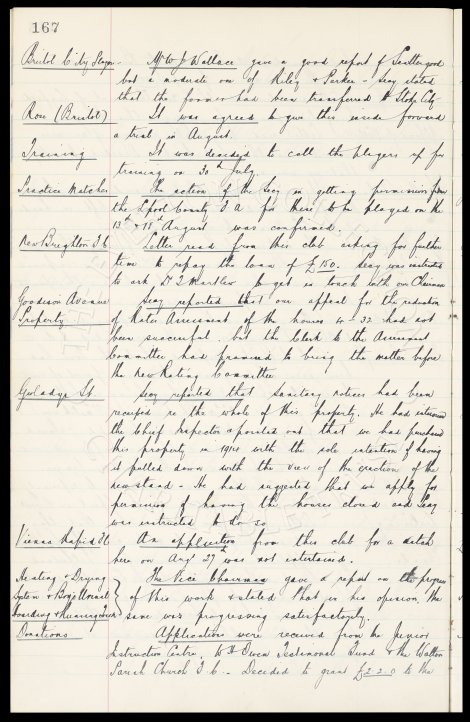 167
Bristol City Player. Mr W J Wallace gave a good report of Scattergood
but a moderate one of Riley & Parker - Secy stated
that the former had been transferred to Stoke City
Rose (Bristol) It was agreed to give this inside forward
a trial in August.
Training It was decided to call the players up for
training on 30th July.
Practice Matches The action of the Secy in getting permission from
the Lpool County F A for these to be played on the
13th & 18 August was confirmed.
New Brighton F.C. Letter read from this club asking for further
time to repay the loan of £150. Secy was instructed
to ask Mardlew to get in touch with our Chairman
Goodison Avenue Secy reported that our appeal for the reduction
Property of Rates Assessment of the houses had not
been successful. but the Clerk to the Assessment
Committee had promised to bring the matter before
the New Rating Committee
Gwladys St. Secy reported that Sanitary notices had been
received re the whole of this property. He had interviewed
the Chief Inspector & pointed out that we had purchased
this property in 1914 with the sole intention of having
it pulled down with the view of the erection of the
new stand - He had suggested that we apply for
permission of having the houses closed and Secy
was instructed to do so
Vienna Rapid F.C An application from this club for a match
here on Augt 27th was not entertained.
Heating & Drying The Vice Chairman gave a report on the progress
System & Boys of this work & stated that in his opinion, the
Hoarding same was progressing satisfactorily.
Donations Applications were received from the Junior
Instruction Centre. W H Owen Testimonial Fund & the Walton
Parish Church F.C. - Decided to grant £2.2.0 to the